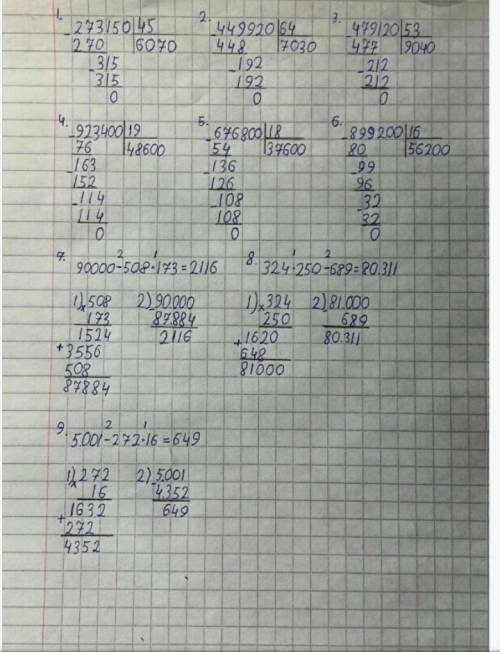 1. 273150 45
270 6070
315
315
0
2. 449920 64
448 7030
192
192
0
3. 479120 53
477 9040
212
212
0
4. 923400 19
76 48600
163
152
114
114
0
5. 676800 18
54 37600
136
126
108
108
0
6. 899200 16
80 56200
99
96
32
32
0
7. 90000-508·173=2116
2 1
1) 508
x 173
1524
+3556
508
87884
2) 90000
87884
2116
8. 324·250-689=80.311
1 2
1) 324
x 250
+1620
648
81000
2) 81.000
689
80.311
9. 5.001-272·16=649
2 1
1) 272
x 16
+1632
272
4352
2) 5.001
4.352
649